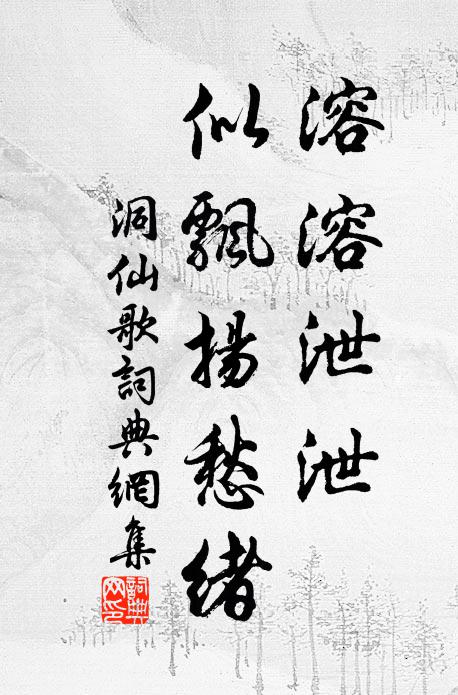 溶溶泄泄
似飄揚愁緒
洞仙歌詞典網集